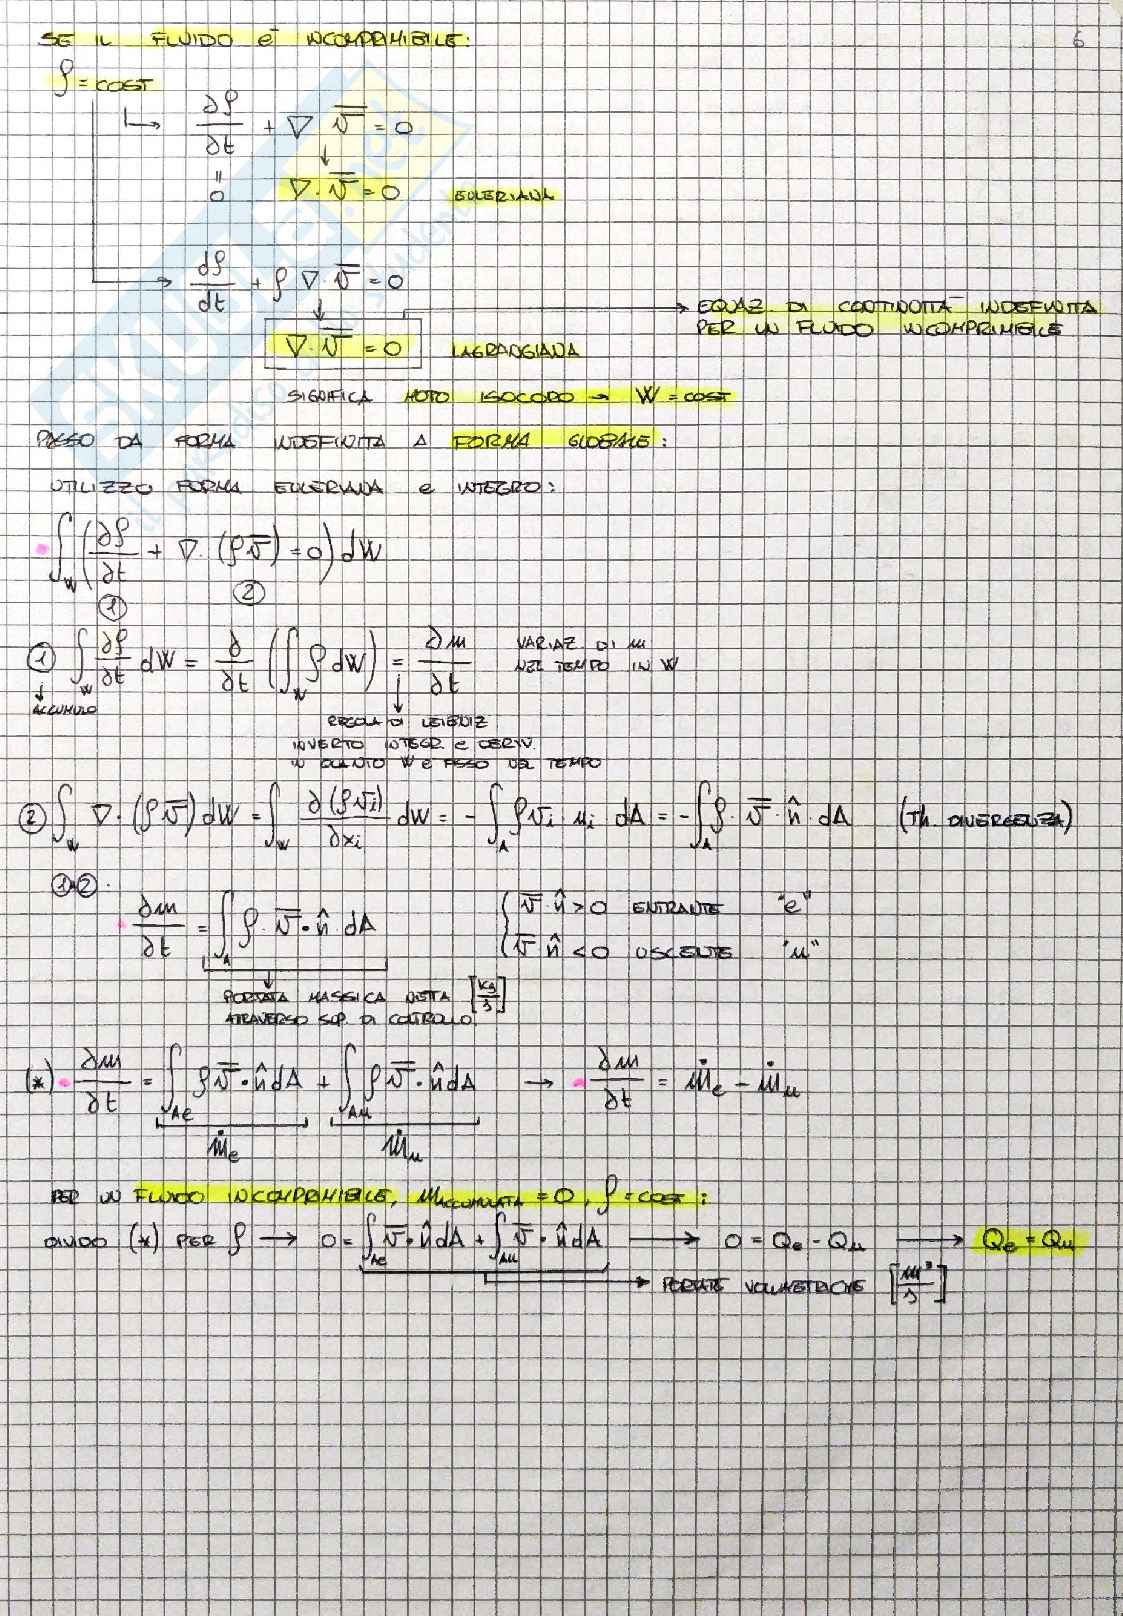 6
SE IL FLUIDO è INCOMPRIMIBILE:
ρ = COST
∂ρ/∂t + ∇ v̅ = 0
0 ∇·v̅ = 0 EULERIANA
dρ/dt + ρ ∇·v̅ = 0
EQUAZ. DI CONTINUITÀ INDEFINITA
PER UN FLUIDO INCOMPRIMIBILE
∇·v̅ = 0 LAGRANGIANA
SIGNIFICA MOTO ISOCORO → W = COST
PASSO DA FORMA INDEFINITA A FORMA GLOBALE:
UTILIZZO FORMA EULERIANA e INTEGRO:
∫_W (∂ρ/∂t + ∇·(ρv̅) = 0) dW
① ②
① ∫_W ∂ρ/∂t dW = ∂/∂t (∫_W ρ dW) = ∂m/∂t VARIAZ. DI m
NEL TEMPO IN W
ACCUMULO
REGOLA DI LEIBNIZ
INVERTO INTEGR. e DERIV.
IN QUANTO W è FISSO NEL TEMPO
② ∫_W ∇·(ρv̅) dW = ∫_W ∂(ρv̅i)/∂xi dW = - ∫_A ρvi · ni dA = - ∫_A ρ · v̅ · n̂ · dA (Th. DIVERGENZA)
① ②
∂m/∂t = ∫_A ρ · v̅ · n̂ · dA
v̅ · n̂ > 0 ENTRANTE "e"
v̅ n̂ < 0 USCENTE "u"
PORTATA MASSICA NETTA [kg/s]
ATTRAVERSO SUP. DI CONTROLLO
(*) ∂m/∂t = ∫_Ae ρv̅ · n̂ dA + ∫_Au ρ v̅ · n̂ dA → ∂m/∂t = ṁe - ṁu
ṁe ṁu
PER UN FLUIDO INCOMPRIMIBILE, mACCUMULATA = 0, ρ = COST:
DIVIDO (*) PER ρ → 0 = ∫_Ae v̅ · n̂ dA + ∫_Au v̅ · n̂ dA → 0 = Qe - Qu → Qe = Qu
PORTATE VOLUMETRICHE [m³/s]